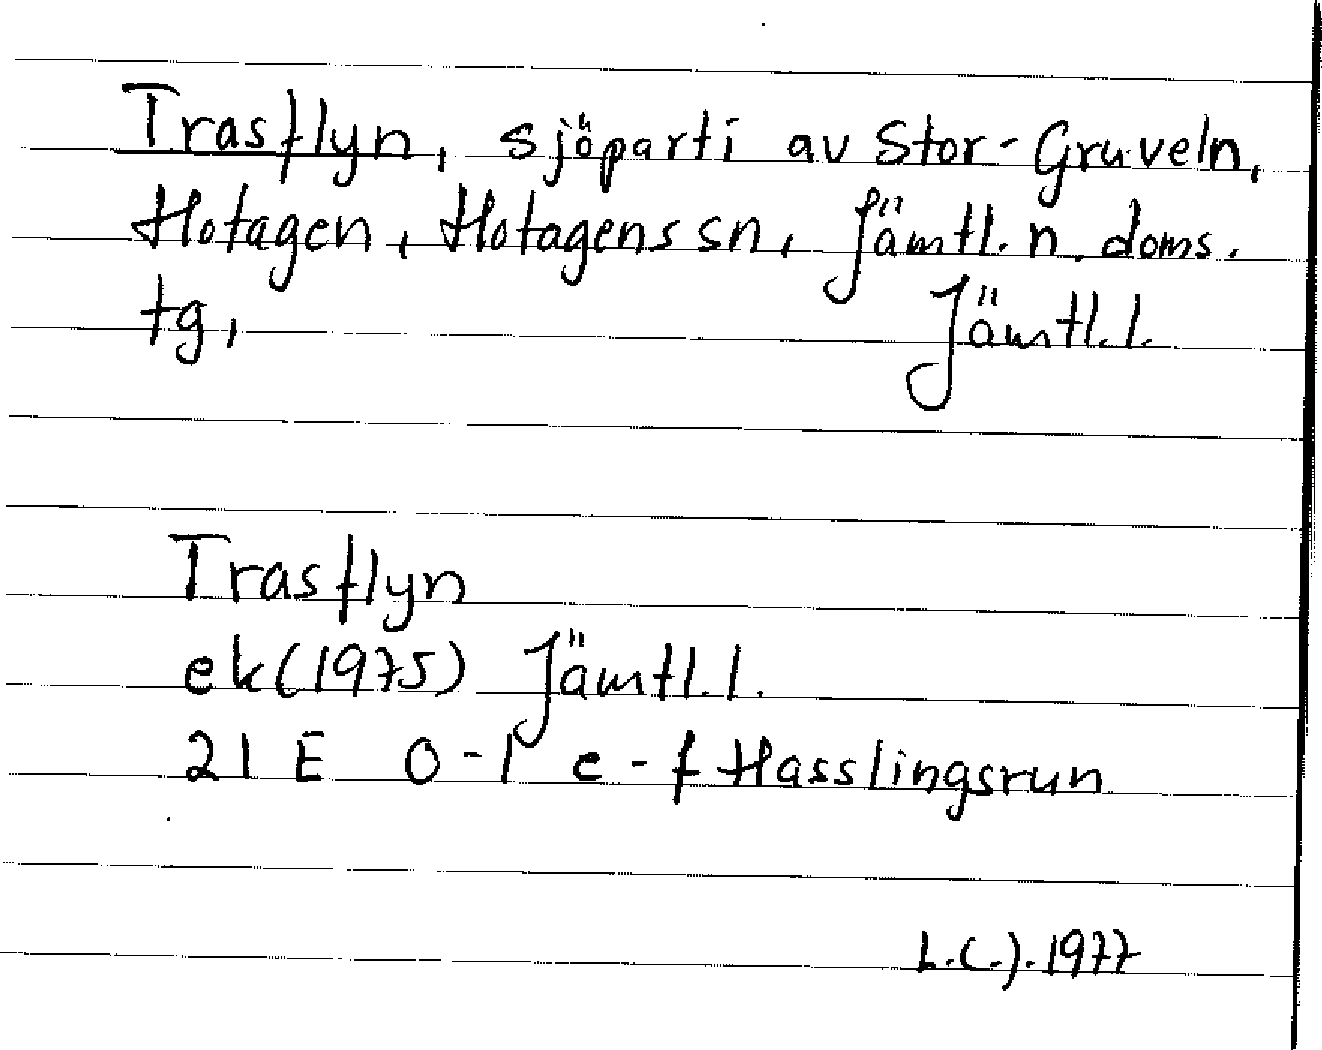 Trasflyn, sjöparti av Stor-Gruveln,
Hotagen, Hotagens sn, Jämtl. n. doms.
tg, Jämtl. l.
Trasflyn
ek (1975) Jämtl. l.
21 E 0-1 e-f Hasslingsrun
L.C.J. 1977